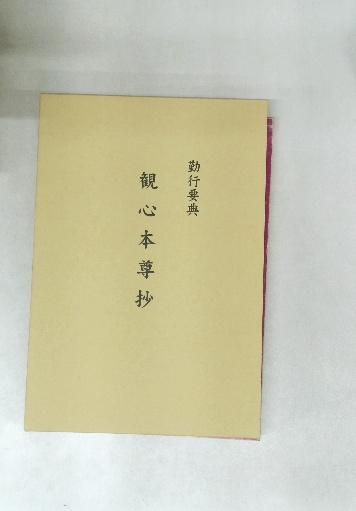 勤行要典
観心本尊抄